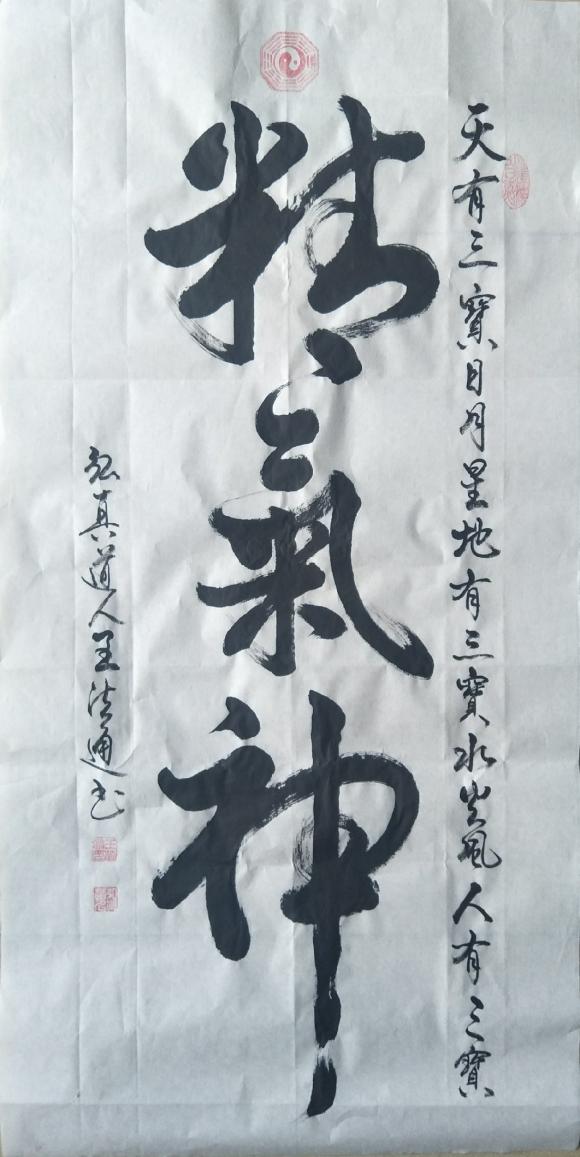 天有三寶日月星地有三寶水火風人有三寶
精氣神
弘真道人王法通书